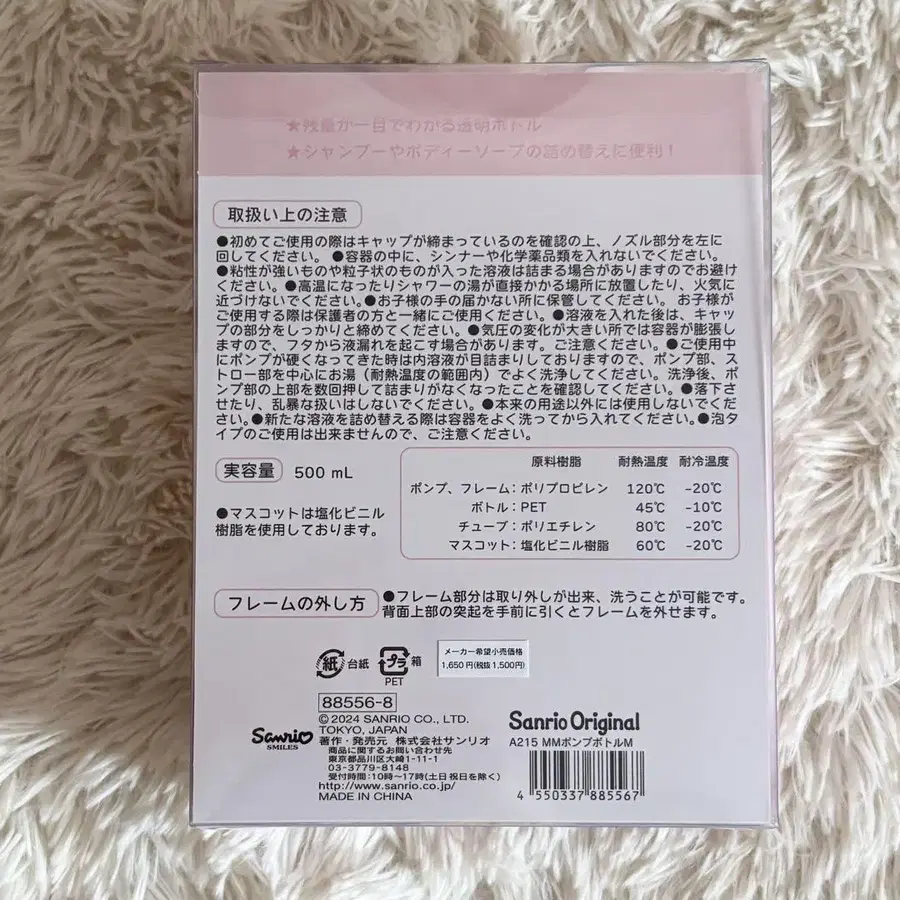 ★残量が一目でわかる透明ボトル
★シャンプーやボディーソープの詰め替えに便利！
取扱い上の注意
●初めてご使用の際はキャップが締まっているのを確認の上、ノズル部分を左に
回してください。●容器の中に、シンナーや化学薬品類を入れないでください。
●粘性が強いものや粒子状のものが入った溶液は詰まる場合がありますのでお避け
ください。●高温になったりシャワーの湯が直接かかる場所に放置したり、火気に
近づけないでください。●お子様の手の届かない所に保管してください。 お子様が
ご使用する際は保護者の方と一緒にご使用ください。●溶液を入れた後は、キャッ
プの部分をしっかりと締めてください。●気圧の変化が大きい所では容器が膨張し
ますので、フタから液漏れを起こす場合があります。ご注意ください。●ご使用中
にポンプが硬くなってきた時は内溶液が目詰まりしておりますので、ポンプ部、ス
トロー部を中心にお湯（耐熱温度の範囲内）でよく洗浄してください。洗浄後、ポ
ンプ部の上部を数回押して詰まりがなくなったことを確認してください。●落下さ
せたり、乱暴な扱いはしないでください。●本来の用途以外には使用しないでくだ
さい。●新たな溶液を詰め替える際は容器をよく洗ってから入れてください。●泡タ
イプのご使用は出来ませんので、ご注意ください。
実容量 500 mL
●マスコットは塩化ビニル
樹脂を使用しております。
原料樹脂 耐熱温度 耐冷温度
ポンプ、フレーム：ポリプロピレン 120℃ -20℃
ボトル：PET 45℃ -10℃
チューブ：ポリエチレン 80℃ -20℃
マスコット：塩化ビニル樹脂 60℃ -20℃
フレームの外し方
●フレーム部分は取り外しが出来、洗うことが可能です。
背面上部の突起を手前に引くとフレームを外せます。
紙 台紙 プラ 箱
PET
メーカー希望小売価格
1,650円(税抜1,500円)
88556-8
©2024 SANRIO CO., LTD.
TOKYO, JAPAN
著作・発売元 株式会社サンリオ
商品に関するお問い合わせ先
東京都品川区大崎1-11-1
03-3779-8148
受付時間：10時〜17時(土日祝日を除く)
http://www.sanrio.co.jp/
MADE IN CHINA
Sanrio
SMILES
Sanrio Original
A215 MMポンプボトルM
4 550337 885567